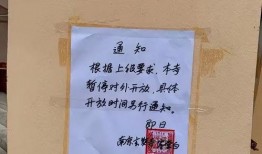 通知
根据上级要求，本寺
暂停对外开放，具体
开放时间另行通知。
即日
南京古鸡鸣寺宣